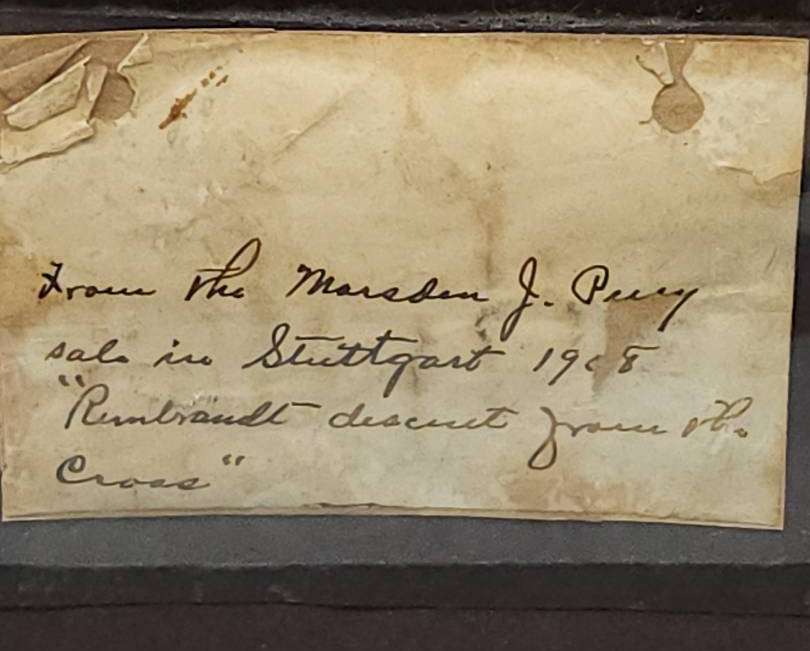 From the Marsden J. Perry
sale in Stuttgart 1908
"Rembrandt descent from the
Cross"